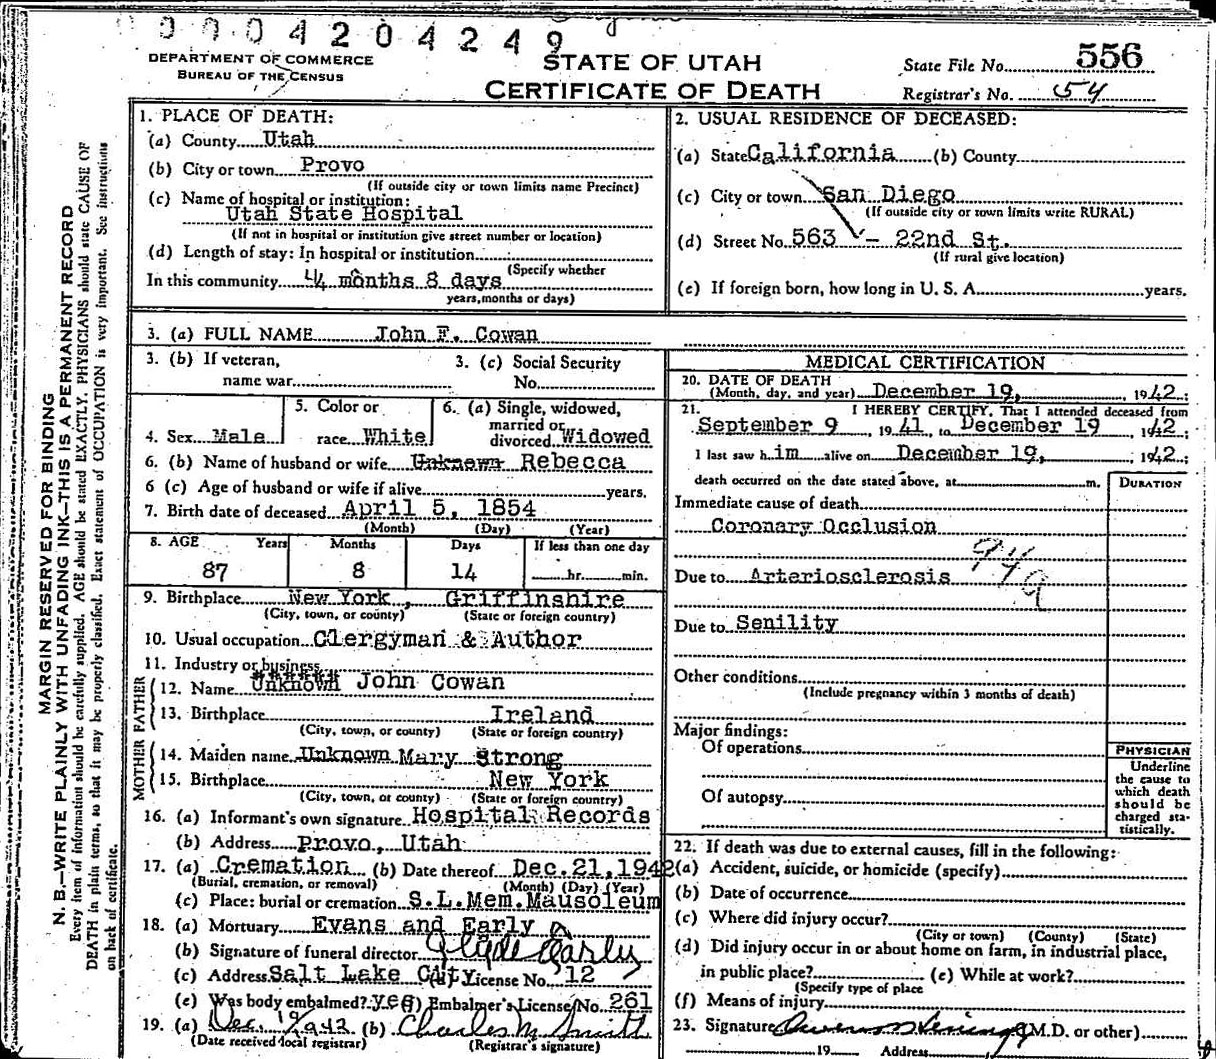 0 0 0 4 2 0 4 2 4 9
DEPARTMENT OF COMMERCE
BUREAU OF THE CENSUS
STATE OF UTAH
CERTIFICATE OF DEATH
State File No. 556
Registrar's No. 54
MARGIN RESERVED FOR BINDING
N. B.—WRITE PLAINLY WITH UNFADING INK—THIS IS A PERMANENT RECORD
Every item of information should be carefully supplied. AGE should be stated EXACTLY. PHYSICIANS should state CAUSE OF
DEATH in plain terms, so that it may be properly classified. Exact statement of OCCUPATION is very important. See instructions
on back of certificate.
1. PLACE OF DEATH:
(a) County Utah
(b) City or town Provo
(If outside city or town limits name Precinct)
(c) Name of hospital or institution:
Utah State Hospital
(If not in hospital or institution give street number or location)
(d) Length of stay: In hospital or institution
(Specify whether
In this community 4 months 8 days
years, months or days)
2. USUAL RESIDENCE OF DECEASED:
(a) State California (b) County
(c) City or town San Diego
(If outside city or town limits write RURAL)
(d) Street No. 563 - 22nd St.
(If rural give location)
(e) If foreign born, how long in U. S. A. years.
3. (a) FULL NAME John F. Cowan
3. (b) If veteran,
name war
3. (c) Social Security
No.
4. Sex Male
5. Color or
race White
6. (a) Single, widowed,
married or
divorced Widowed
6. (b) Name of husband or wife Unknown Rebecca
6 (c) Age of husband or wife if alive years.
7. Birth date of deceased April 5, 1854
(Month) (Day) (Year)
8. AGE Years Months Days If less than one day
87 8 14 hr. min.
9. Birthplace New York, Griffinshire
(City, town, or county) (State or foreign country)
10. Usual occupation Clergyman & Author
11. Industry or business
FATHER
12. Name Unknown John Cowan
13. Birthplace Ireland
(City, town, or county) (State or foreign country)
MOTHER
14. Maiden name Unknown Mary Strong
15. Birthplace New York
(City, town, or county) (State or foreign country)
16. (a) Informant's own signature Hospital Records
(b) Address Provo, Utah
17. (a) Cremation (b) Date thereof Dec. 21, 1942
(Burial, cremation, or removal) (Month) (Day) (Year)
(c) Place: burial or cremation S.L.Mem.Mausoleum
18. (a) Mortuary Evans and Early
(b) Signature of funeral director Clyde Early
(c) Address Salt Lake City License No. 12
(e) Was body embalmed? yes Embalmer's License No. 261
19. (a) Dec. 19 1942 (b) Charles M Smith
(Date received local registrar) (Registrar's signature)
MEDICAL CERTIFICATION
20. DATE OF DEATH
(Month, day, and year) December 19, 1942;
21. I HEREBY CERTIFY, That I attended deceased from
September 9 1941, to December 19 1942;
I last saw him alive on December 19, 1942;
death occurred on the date stated above, at m.
DURATION
Immediate cause of death
Coronary Occlusion
94a
Due to Arteriosclerosis
Due to Senility
Other conditions
(Include pregnancy within 3 months of death)
Major findings:
Of operations
Of autopsy
PHYSICIAN
Underline
the cause to
which death
should be
charged sta-
tistically.
22. If death was due to external causes, fill in the following:
(a) Accident, suicide, or homicide (specify)
(b) Date of occurrence
(c) Where did injury occur?
(City or town) (County) (State)
(d) Did injury occur in or about home on farm, in industrial place,
in public place? (e) While at work?
(Specify type of place
(f) Means of injury
23. Signature (M.D. or other)
19 Address